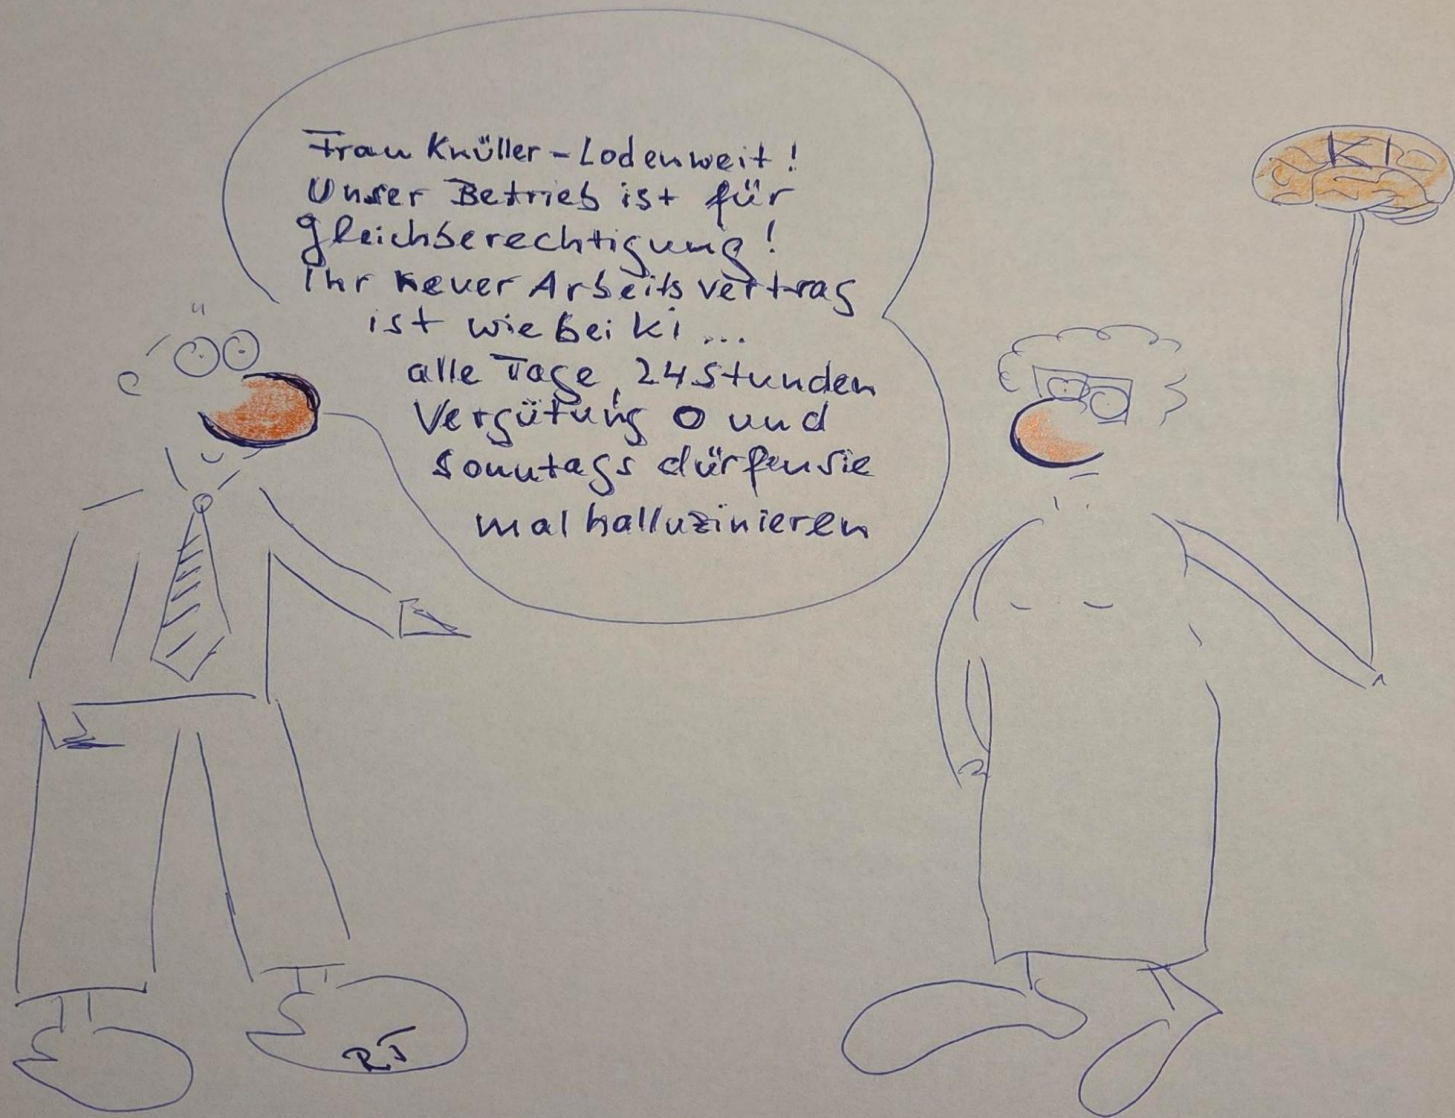 Frau Knüller-Lodenweit!
Unser Betrieb ist für
gleichberechtigung!
Ihr neuer Arbeitsvertrag
ist wie bei KI...
alle Tage, 24 Stunden
Vergütung 0 und
Sonntags dürfen sie
mal halluzinieren
KI
RJ